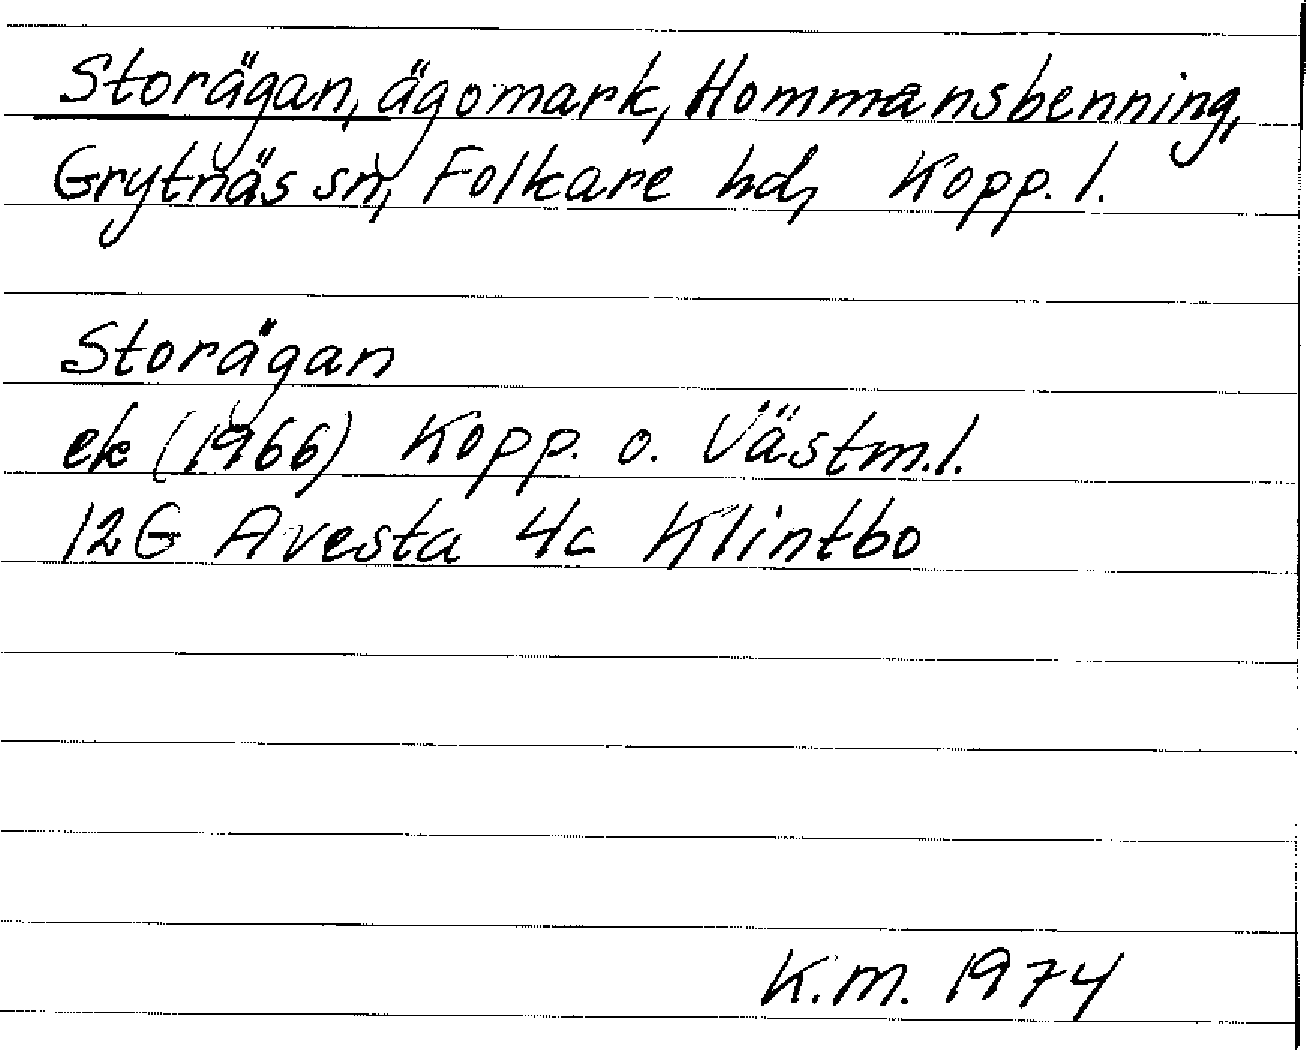 Storägan, ägomark, Hommansbenning,
Grytnäs sn, Folkare hd, Kopp. l.
Storägan
ek (1966) Kopp. o. Västm.l.
12G Avesta 4c Klintbo
K.M. 1974